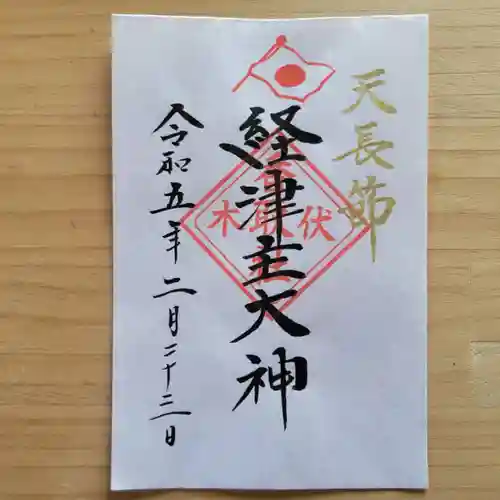 天長節
経津主大神
令和五年二月二十三日
木
伏